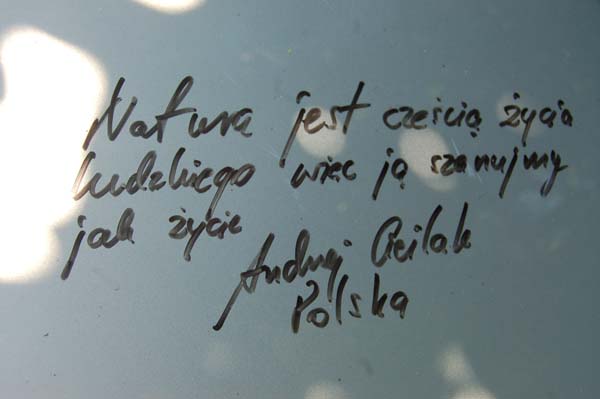 Natura jest cześcią życia
ludzkiego więc ją szanujmy
jak życie
Andrzej
Polska